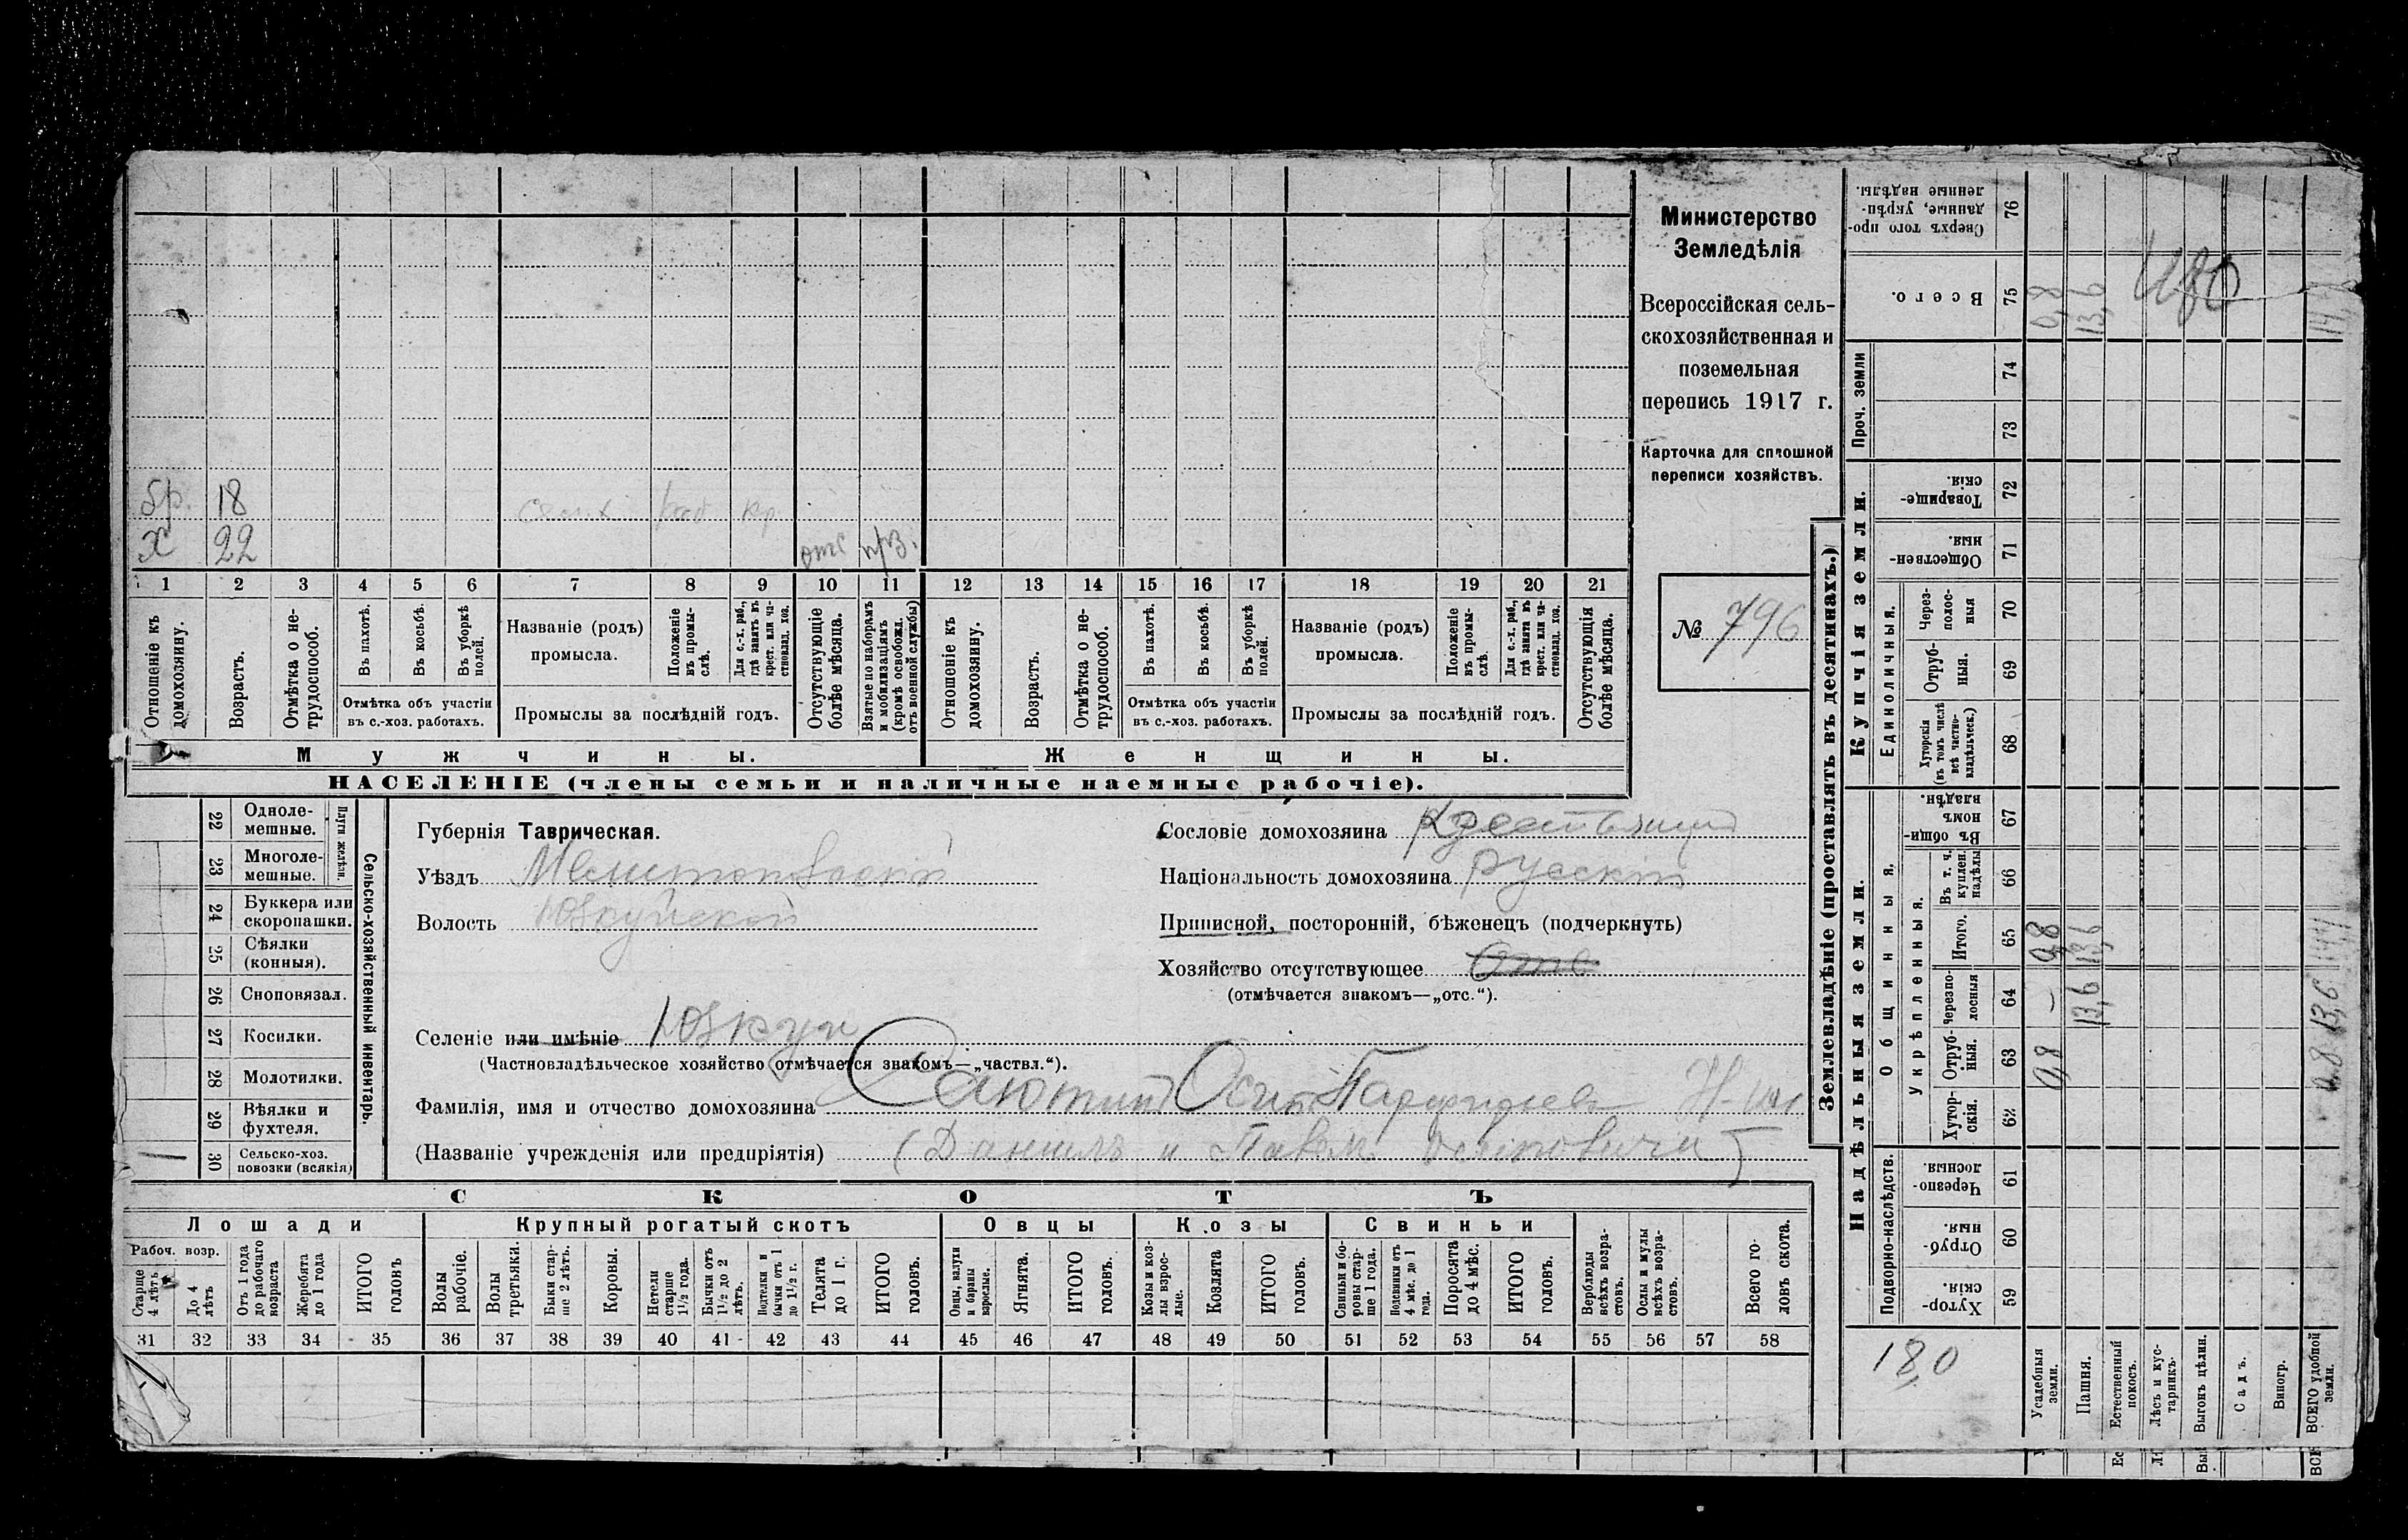 бр. 18 раб кр.
х 22 отс
1 2 3 4 5 6 7 8 9 10 11 12 13 14 15 16 17 18 19 20 21
Отношеніе къ домохозяину.
Возрастъ.
Отмѣтка о нетрудоспособ.
Въ пахотѣ.
Въ косьбѣ.
Въ уборкѣ полей.
Отмѣтка объ участіи
въ с.-хоз. работахъ.
Названіе (родъ)
промысла.
Положеніе въ промыслѣ.
Для с.-х. раб., гдѣ занятъ въ крест. или частновлад. хоз.
Промыслы за послѣдній годъ.
Отсутствующіе болѣе мѣсяца.
Взятые по наборамъ и мобилизаціямъ (кромѣ освобожд. отъ военной службы)
Отношеніе къ домохозяину.
Возрастъ.
Отмѣтка о нетрудоспособ.
Въ пахотѣ.
Въ косьбѣ.
Въ уборкѣ полей.
Отмѣтка объ участіи
въ с.-хоз. работахъ.
Названіе (родъ)
промысла.
Положеніе въ промыслѣ.
Для с.-х. раб., гдѣ занята въ крест. или частновлад. хоз.
Промыслы за послѣдній годъ.
Отсутствующія болѣе мѣсяца.
Мужчины. Женщины.
НАСЕЛЕНІЕ (члены семьи и наличные наемные рабочіе).
Министерство
Земледѣлія
Всероссійская сель-
скохозяйственная и
поземельная
перепись 1917 г.
Карточка для сплошной
переписи хозяйствъ.
№ 796
Сельско-хозяйственный инвентарь.
Плуги желѣзн.
22 Одноле-
мешные.
23 Многоле-
мешные.
24 Буккера или
скоропашки.
25 Сѣялки
(конныя).
26 Сноповязал.
27 Косилки.
28 Молотилки.
29 Вѣялки и
фухтеля.
30 Сельско-хоз.
повозки (всякія)
Губернія Таврическая.
Уѣздъ Мелитопольскій
Волость Юзкуйской
Селеніе или имѣніе Юзкуи
(Частновладѣльческое хозяйство отмѣчается знакомъ—„частвл.“).
Фамилія, имя и отчество домохозяина Осип
(Названіе учрежденія или предпріятія) (Данилъ и Павел Осиповичи)
Сословіе домохозяина
Національность домохозяина русскій
Приписной, посторонній, бѣженецъ (подчеркнуть)
Хозяйство отсутствующее Отс
(отмѣчается знакомъ—„отс.“).
СКОТЪ
Лошади Крупный рогатый скотъ Овцы Козы Свиньи
Рабоч. возр.
Старше 4 лѣтъ
До 4 лѣтъ
Отъ 1 года до рабочаго возраста
Жеребята до 1 года
ИТОГО головъ
Волы рабочіе.
Волы третьяки.
Быки старше 2 лѣтъ.
Коровы.
Нетели старше 1½ года.
Бычки отъ 1½ до 2 лѣтъ.
Подтелки и бычки отъ 1 до 1½ г.
Телята до 1 г.
ИТОГО головъ.
Овцы, валухи и бараны взрослые.
Ягнята.
ИТОГО головъ.
Козы и козлы взрослые.
Козлята
ИТОГО головъ.
Свиньи и боровы старше 1 года.
Подсвинки отъ 4 мѣс. до 1 года.
Поросята до 4 мѣс.
ИТОГО головъ.
Верблюды всѣхъ возрастовъ.
Ослы и мулы всѣхъ возрастовъ.
Всего головъ скота.
31 32 33 34 35 36 37 38 39 40 41 42 43 44 45 46 47 48 49 50 51 52 53 54 55 56 57 58
Землевладѣніе (проставлять въ десятинахъ.)
Надѣльныя земли.
Купчія земли.
Проч. земли
Подворно-наслѣдств.
Общинныя.
Укрѣпленныя.
Единоличныя.
Сверхъ того проданные, укрѣпленные надѣлы. 76
Всего. 75 0,8 13,6
74
73
Товарищескія. 72
Общественныя. 71
Черезполосныя 70
Отрубныя. 69
Хуторскія (въ томъ числѣ всѣ частновладѣльчес.) 68
Въ общинномъ владѣн. 67
Въ т. ч. куплен. надѣлы 66
Итого. 65 0,8 13,6 14,4
Черезполосныя 64 – 13,6 13,6
Отрубныя. 63 0,8 0,8
Хуторскія. 62
Черезполосныя. 61
Отрубныя. 60
Хуторскія 59
18,0
Усадебныя земли.
Пашня.
Естественный покосъ.
Лѣсъ и кустарникъ.
Выгонъ цѣлин.
Садъ.
Виногр.
ВСЕГО удобной земли.